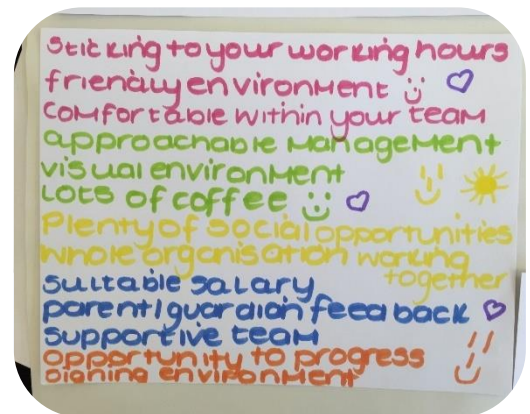 Sticking to your working hours
friendly environment
comfortable within your team
approachable management
visual environment
Lots of coffee
Plenty of social opportunities
whole organisation working
together
suitable salary
parent/guardian feedback
supportive team
opportunity to progress
signing environment